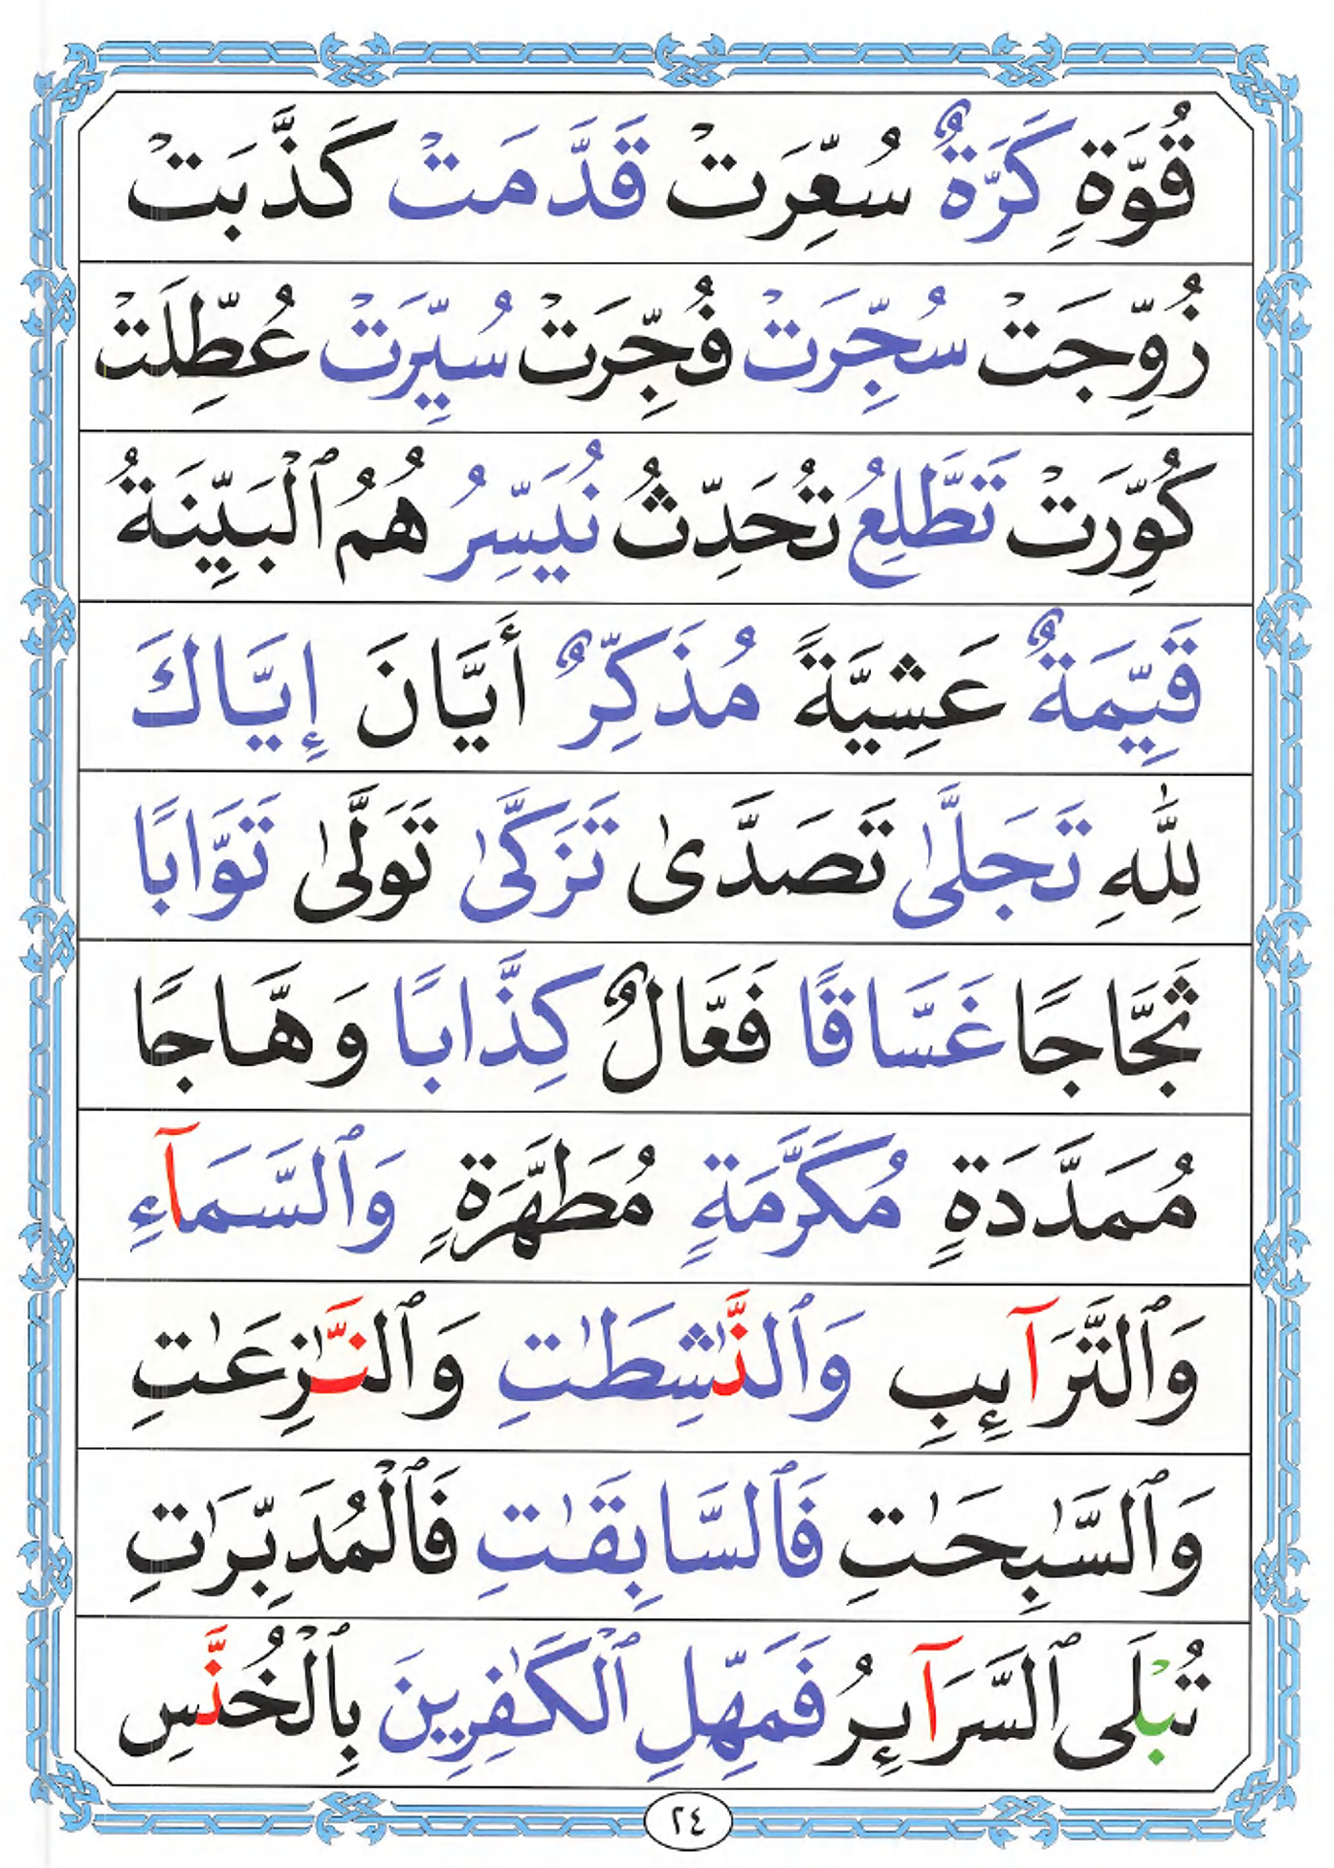 قُوَّةٍ كَرَّةٌ سُعِّرَتْ قَدَّمَتْ كَذَّبَتْ
زُوِّجَتْ سُجِّرَتْ فُجِّرَتْ سُيِّرَتْ عُطِّلَتْ
كُوِّرَتْ تَطَّلِعُ تُحَدِّثُ نُيَسِّرُ هُمُ ٱلْبَيِّنَةُ
قَيِّمَةٌ عَشِيَّةً مُذَكِّرٌ أَيَّانَ إِيَّاكَ
لِلَّهِ تَجَلَّىٰ تَصَدَّىٰ تَزَكَّىٰ تَوَلَّىٰ تَوَّابًا
ثَجَّاجًا غَسَّاقًا فَعَّالٌ كِذَّابًا وَهَّاجًا
مُمَدَّدَةٍ مُكَرَّمَةٍ مُطَهَّرَةٍ وَٱلسَّمَآءِ
وَٱلتَّرَآىِٕبِ وَٱلنَّٰشِطَٰتِ وَٱلنَّٰزِعَٰتِ
وَٱلسَّٰبِحَٰتِ فَٱلسَّابِقَٰتِ فَٱلْمُدَبِّرَٰتِ
تُبْلَى ٱلسَّرَآىِٕرُ فَمَهِّلِ ٱلْكَٰفِرِينَ بِٱلْخُنَّسِ
٢٤